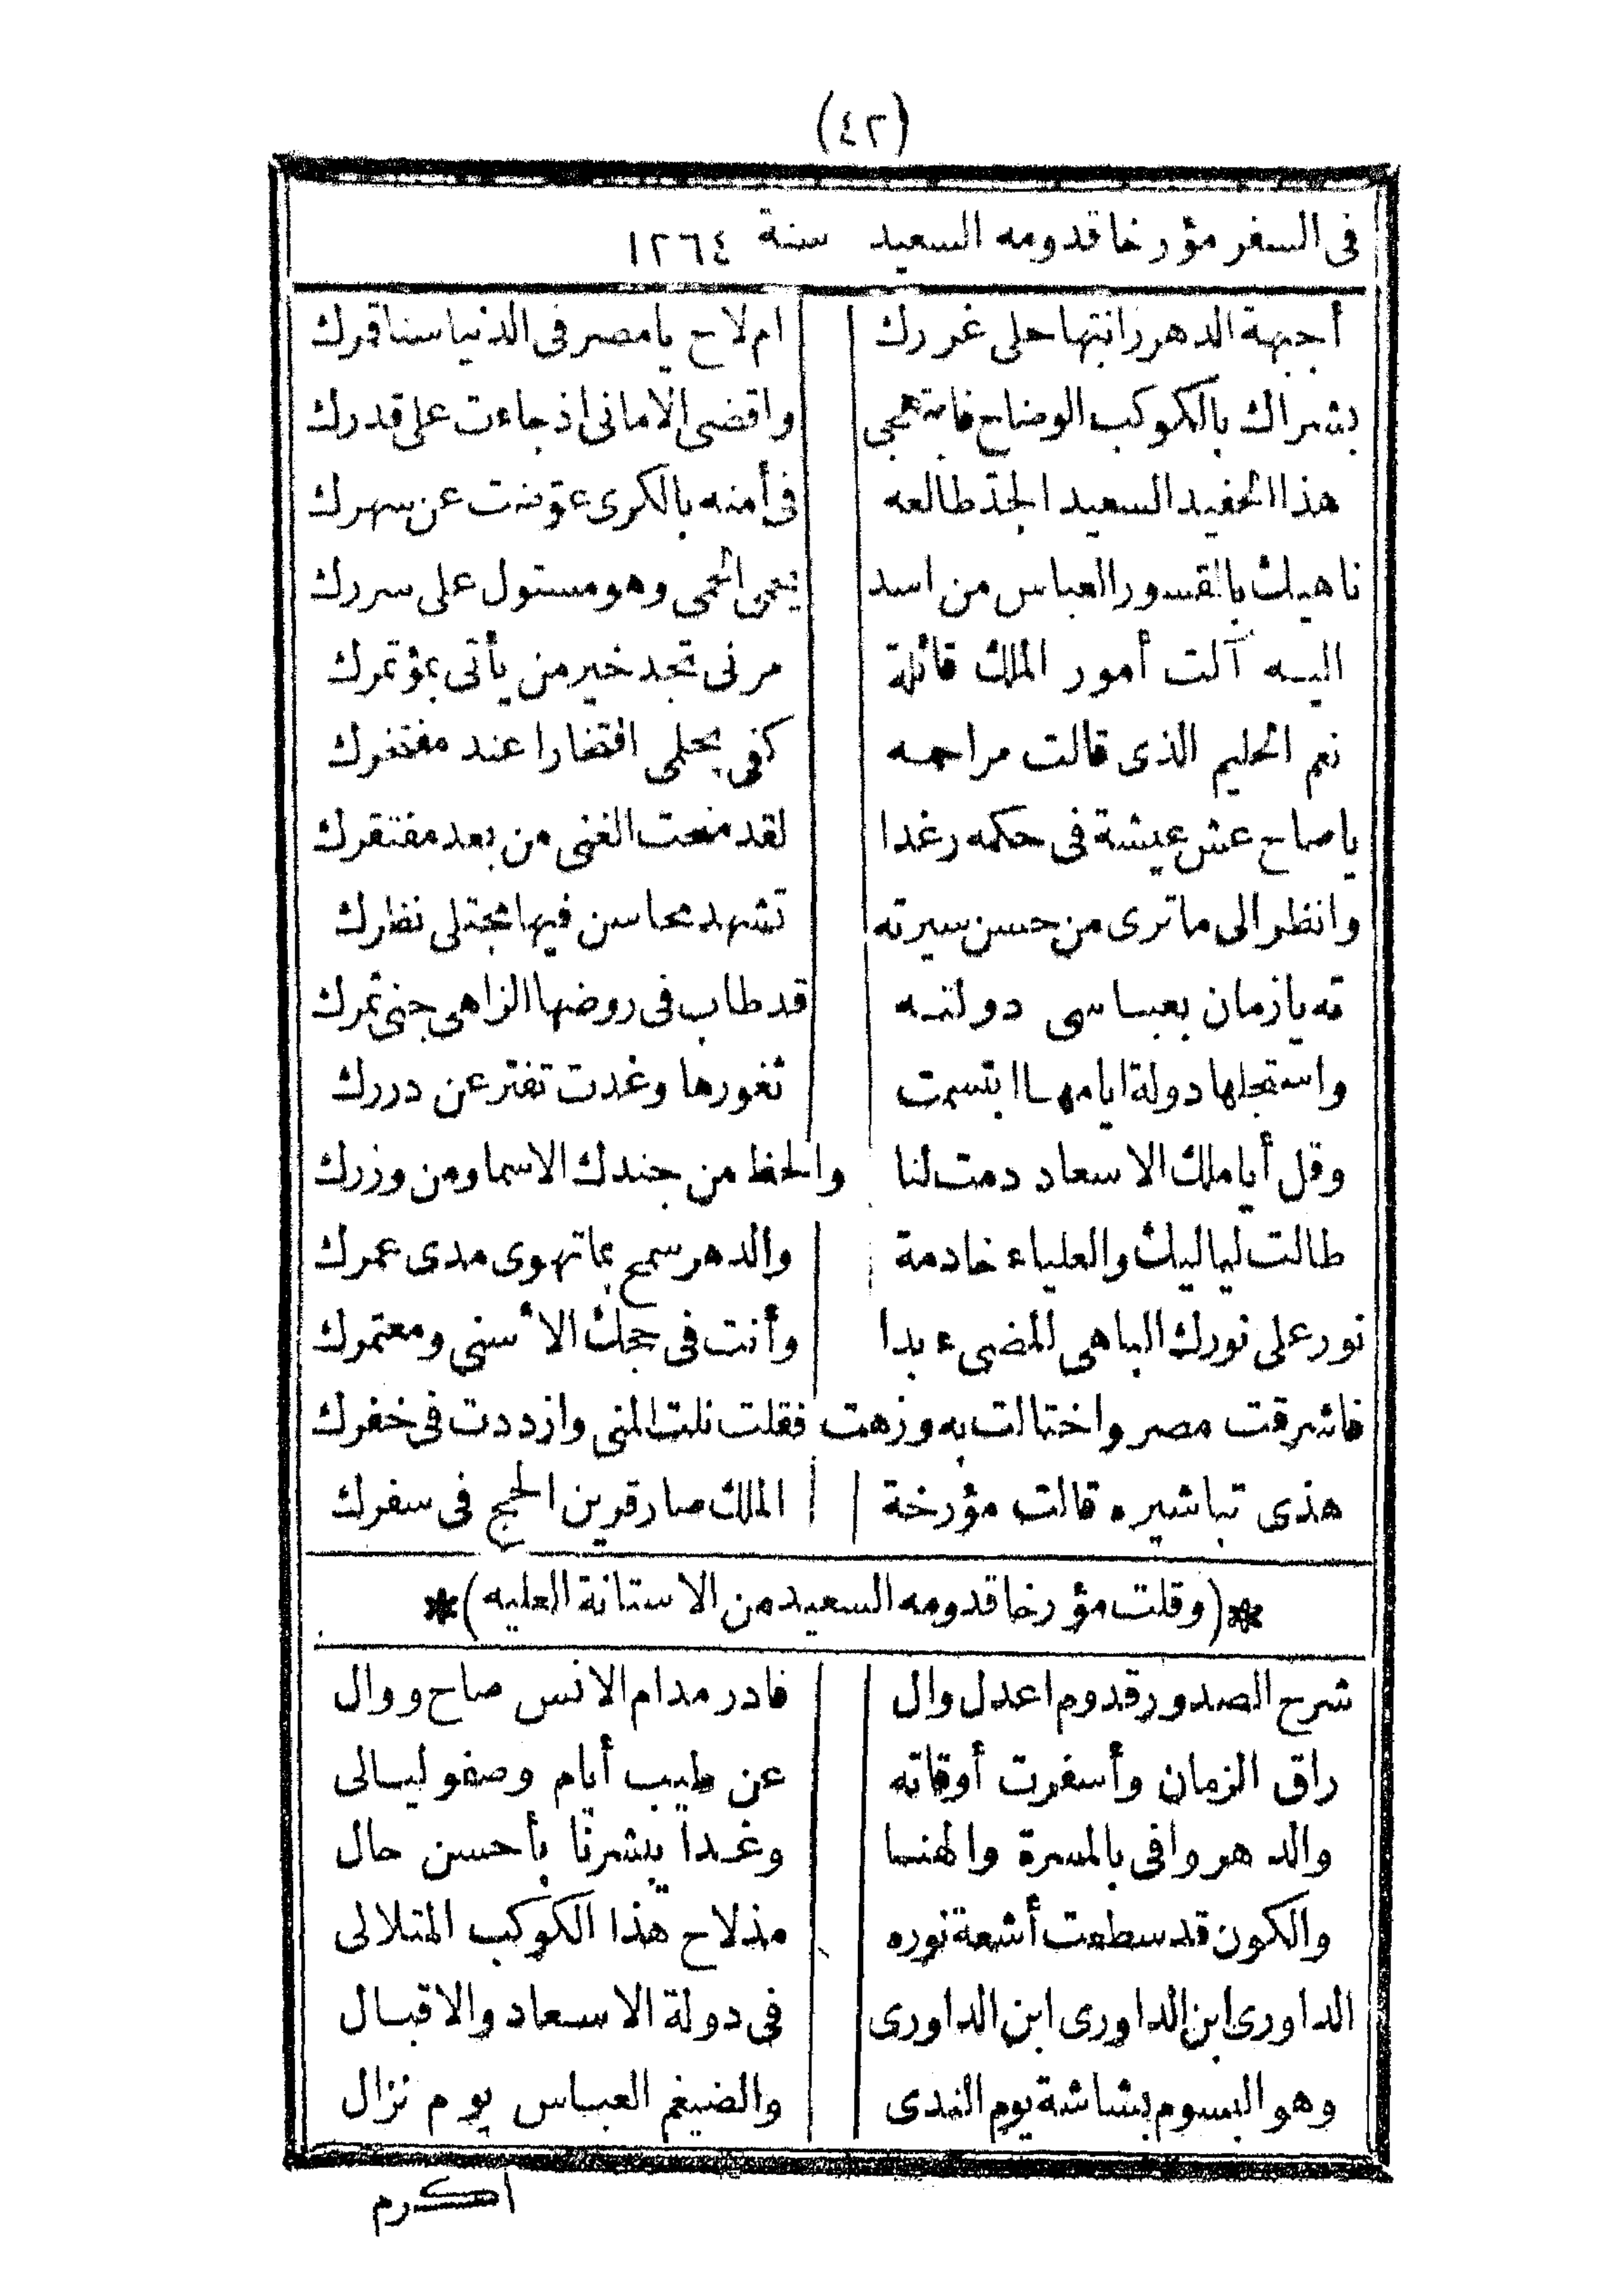 (٤٢)
فى السفر مؤرخا قدومه السعيد سنة ١٢٦٤
أجبهة الدهر زانتها حلى غررك ام لاح يا مصر فى الدنيا سنا قمرك
بشراك بالكوكب الوضاح فابتهجى واقضى الامانى اذ جاءت على قدرك
هذا الحفيد السعيد الجد طالعه فى أمنه بالكرى عوّضت عن سهرك
ناهيك بالقسور العباس من اسد يحمى الحمى وهو مستول على سررك
اليه آلت أمور الملك قائلة مرنى تجد خير من يأتى بمؤتمرك
نعم الحليم الذى قالت مراحمه كفى بحلمى افتخارا عند مفتخرك
يا صاح عش عيشة فى حكمه رغدا لقد منحت الغنى من بعد مفتقرك
وانظر الى ما ترى من حسن سيرته تشهد محاسن فيها مجتلى نظرك
ته يا زمان بعباسى دولته قد طاب فى روضها الزاهى جنى ثمرك
واستجلها دولة ايامها ابتسمت ثغورها وغدت تفتر عن دررك
وقل أيا ملك الاسعاد دمت لنا والحظ من جندك الاسما ومن وزرك
طالت لياليك والعلياء خادمة والدهر سمح بما تهوى مدى عمرك
نور على نورك الباهى المضىء بدا وأنت فى حجك الأسنى ومعتمرك
فاشرقت مصر واختالت به وزهت فقلت نلت المنى وازددت فى خفرك
هذى تباشيره قالت مؤرخة الملك صار قرين الحج فى سفرك
*(وقلت مؤرخا قدومه السعيد من الاستانة العليه)*
شرح الصدور قدوم اعدل وال فادر مدام الانس صاح ووال
راق الزمان وأسفرت أوقاته عن طيب أيام وصفو ليالى
والدهر وافى بالمسرة والهنا وغدا يبشرنا بأحسن حال
والكون قد سطعت أشعة نوره مذ لاح هذا الكوكب المتلالى
الداورى ابن الداورى ابن الداورى فى دولة الاسعاد والاقبال
وهو البسوم بشاشة يوم الندى والضيغم العباس يوم نزال
اكرم